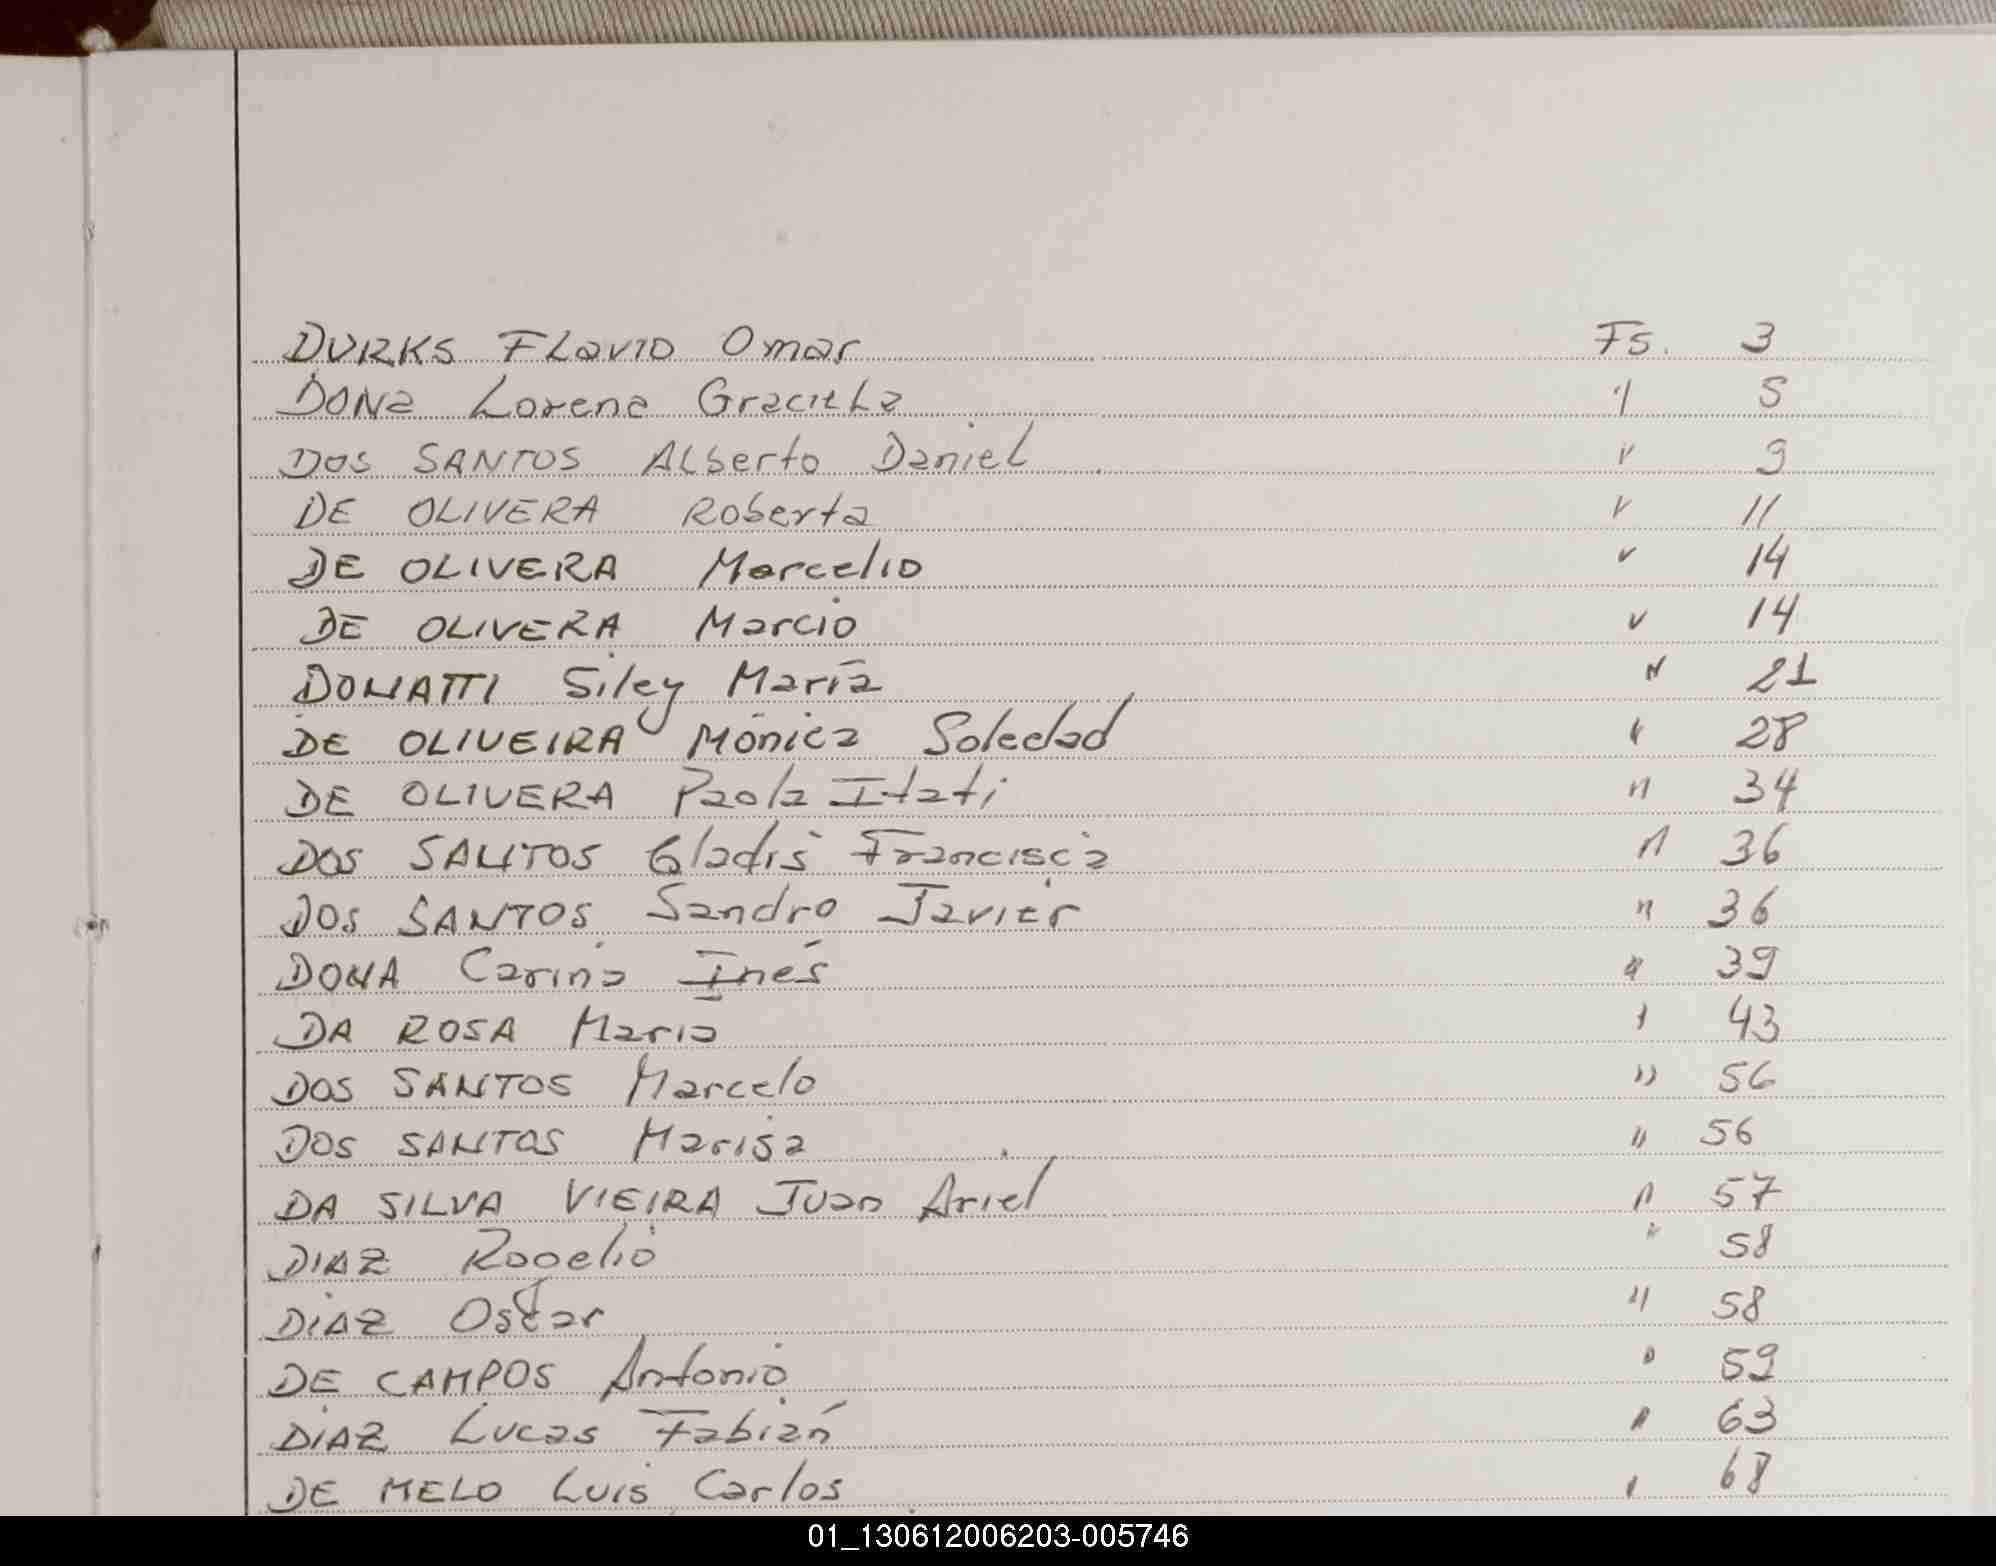 DURKS FLavio Omar Fs. 3
DONa Lorena GracieLa " 5
DOS SANTOS ALberto Daniel " 9
DE OLIVERA Roberta " 11
DE OLIVERA Marcelio " 14
DE OLIVERA Marcio " 14
DONATTI Siley María " 21
DE OLIVEIRA Mónica Soledad " 28
DE OLIVERA Paola Itati " 34
DOS SANTOS Gladis Francisca " 36
DOS SANTOS Sandro Javier " 36
DONA Carina Inés " 39
DA ROSA Maria " 43
DOS SANTOS Marcelo " 56
DOS SANTOS Marisa " 56
DA SILVA VIEIRA Juan Ariel " 57
DIAZ Rogelio " 58
DIAZ Oscar " 58
DE CAMPOS Antonio " 59
DIAZ Lucas Fabián " 63
DE MELO Luis Carlos " 68
01_130612006203-005746